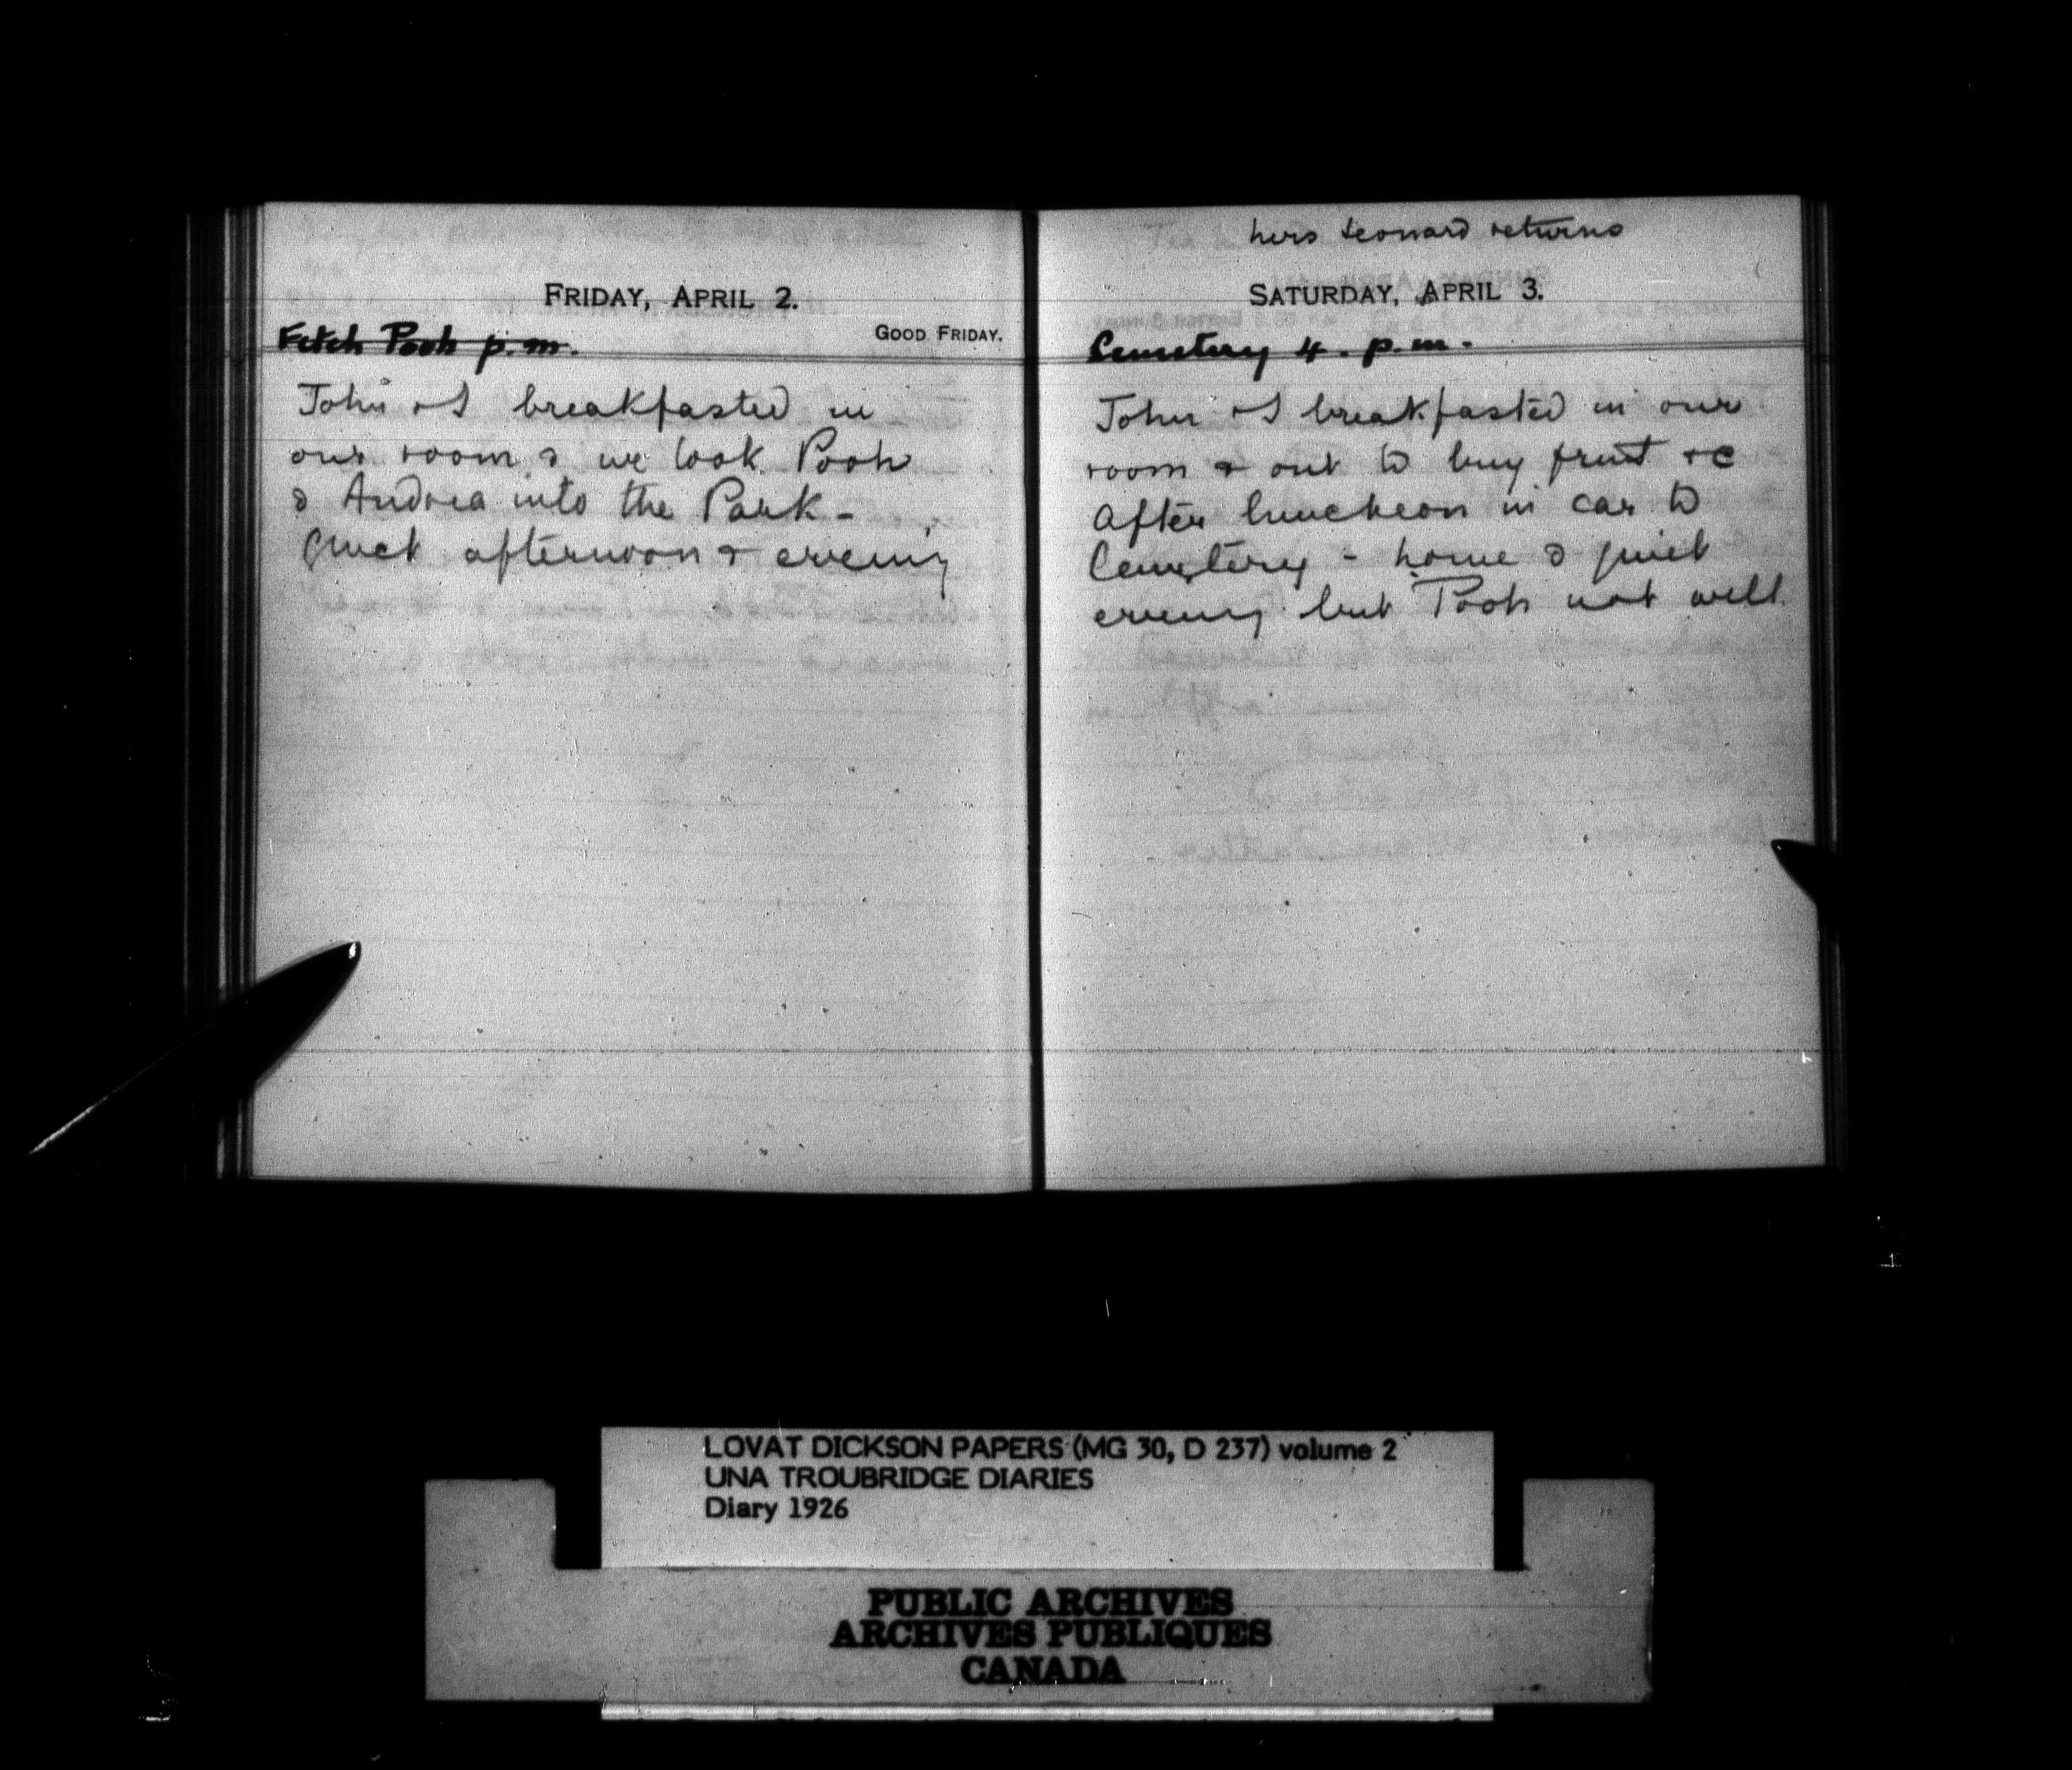 FRIDAY, APRIL 2.
GOOD FRIDAY.
Fetch Pooh p.m.
John & I breakfasted in
our room & we took Pooh
& Andrea into the Park -
Quiet afternoon & evening
Mrs Leonard returns
SATURDAY, APRIL 3.
Cemetery 4. p.m.
John & I breakfasted in our
room & out to buy fruit &c
After luncheon in car to
Cemetery - home & quiet
evening but Pooh not well.
LOVAT DICKSON PAPERS (MG 30, D 237) volume 2
UNA TROUBRIDGE DIARIES
Diary 1926
PUBLIC ARCHIVES
ARCHIVES PUBLIQUES
CANADA